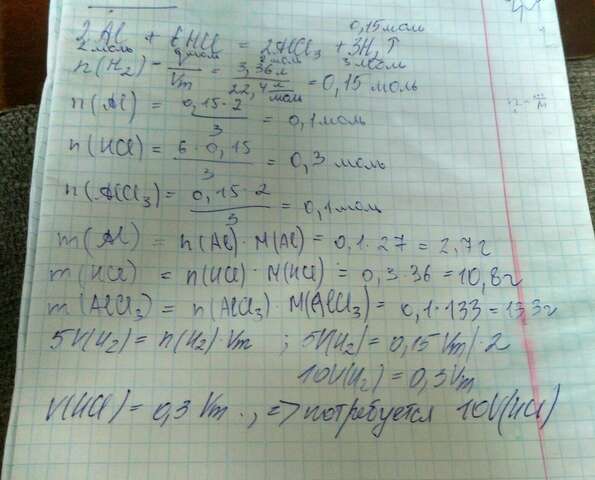 0,15 моль
2Al + 6HCl = 2AlCl₃ + 3H₂↑
2 моль 2 моль 3 моль
n(H₂) = V/Vm = 3,36 л / 22,4 л/моль = 0,15 моль
n(Al) = 0,15·2 / 3 = 0,1 моль
n(HCl) = 6·0,15 / 3 = 0,3 моль
n(AlCl₃) = 0,15·2 / 3 = 0,1 моль
m(Al) = n(Al)·M(Al) = 0,1·27 = 2,7 г
m(HCl) = n(HCl)·M(HCl) = 0,3·36 = 10,8 г
m(AlCl₃) = n(AlCl₃)·M(AlCl₃) = 0,1·133 = 13,3 г
5V(H₂) = n(H₂)·Vm ; 5V(H₂) = 0,15 Vm |·2
10V(H₂) = 0,3Vm
V(HCl) = 0,3 Vm., => потребуется 10V(HCl)